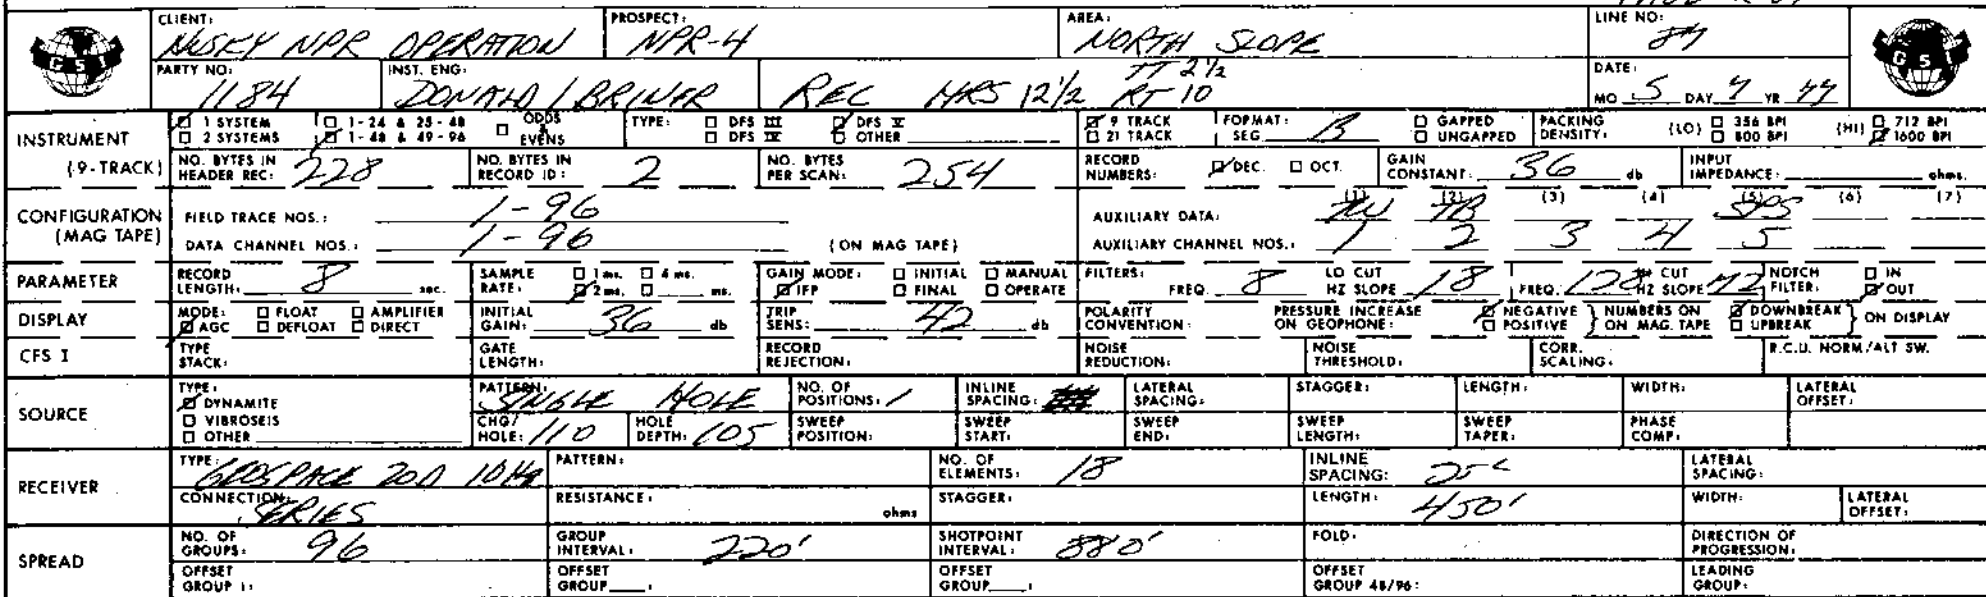 CLIENT: HUSKY NPR OPERATION PROSPECT: NPR-4 AREA: NORTH SLOPE LINE NO:
GSI
PARTY NO: 1184 INST. ENG: DONALD / BRINER REC HRS 12 1/2 TT 2 1/2 RT 10 DATE: MO 5 DAY 7 YR 77
GSI
INSTRUMENT (9-TRACK)
☑ 1 SYSTEM ☐ 1-24 & 25-48 ☐ ODDS & EVENS TYPE: ☐ DFS III ☑ DFS V ☑ 9 TRACK FORMAT: SEG B ☐ GAPPED PACKING DENSITY: (LO) ☐ 356 BPI (HI) ☐ 712 BPI
☐ 2 SYSTEMS ☑ 1-48 & 49-96 ☐ DFS IV ☐ OTHER ☐ 21 TRACK ☐ UNGAPPED ☐ 800 BPI ☑ 1600 BPI
NO. BYTES IN HEADER REC: 228 NO. BYTES IN RECORD ID: 2 NO. BYTES PER SCAN: 254 RECORD NUMBERS: ☑ DEC. ☐ OCT. GAIN CONSTANT: 36 db INPUT IMPEDANCE: ohms.
CONFIGURATION (MAG TAPE)
FIELD TRACE NOS.: 1-96 AUXILIARY DATA: (1) (2) TB (3) (4) (5) (6) (7)
DATA CHANNEL NOS.: 1-96 (ON MAG TAPE) AUXILIARY CHANNEL NOS.: 1 2 3 4 5
PARAMETER
RECORD LENGTH: 8 sec. SAMPLE RATE: ☐ 1 ms. ☐ 4 ms. ☑ 2 ms. ☐ ms. GAIN MODE: ☐ INITIAL ☐ MANUAL ☑ IFP ☐ FINAL ☐ OPERATE FILTERS: FREQ. 8 LO CUT HZ SLOPE 18 FREQ. 128 HI CUT HZ SLOPE 72 NOTCH FILTER: ☐ IN ☑ OUT
DISPLAY
MODE: ☐ FLOAT ☐ AMPLIFIER ☑ AGC ☐ DEFLOAT ☐ DIRECT INITIAL GAIN: 36 db TRIP SENS: 42 db POLARITY CONVENTION: PRESSURE INCREASE ON GEOPHONE: ☑ NEGATIVE ☐ POSITIVE } NUMBERS ON ON MAG. TAPE ☑ DOWNBREAK ☐ UPBREAK } ON DISPLAY
CFS I
TYPE STACK: GATE LENGTH: RECORD REJECTION: NOISE REDUCTION: NOISE THRESHOLD: CORR. SCALING: R.C.U. NORM/ALT SW.
SOURCE
TYPE: ☑ DYNAMITE ☐ VIBROSEIS ☐ OTHER
PATTERN: SINGLE HOLE NO. OF POSITIONS: 1 INLINE SPACING: LATERAL SPACING: STAGGER: LENGTH: WIDTH: LATERAL OFFSET:
CHG/HOLE: 110 HOLE DEPTH: 105 SWEEP POSITION: SWEEP START: SWEEP END: SWEEP LENGTH: SWEEP TAPER: PHASE COMP:
RECEIVER
TYPE: GEOSPACE 20D 10 Hz PATTERN: NO. OF ELEMENTS: 18 INLINE SPACING: 25' LATERAL SPACING:
CONNECTION: SERIES RESISTANCE: ohms STAGGER: LENGTH: 450' WIDTH: LATERAL OFFSET:
SPREAD
NO. OF GROUPS: 96 GROUP INTERVAL: 220' SHOTPOINT INTERVAL: 880' FOLD: DIRECTION OF PROGRESSION:
OFFSET GROUP 1: OFFSET GROUP : OFFSET GROUP : OFFSET GROUP 48/96: LEADING GROUP: